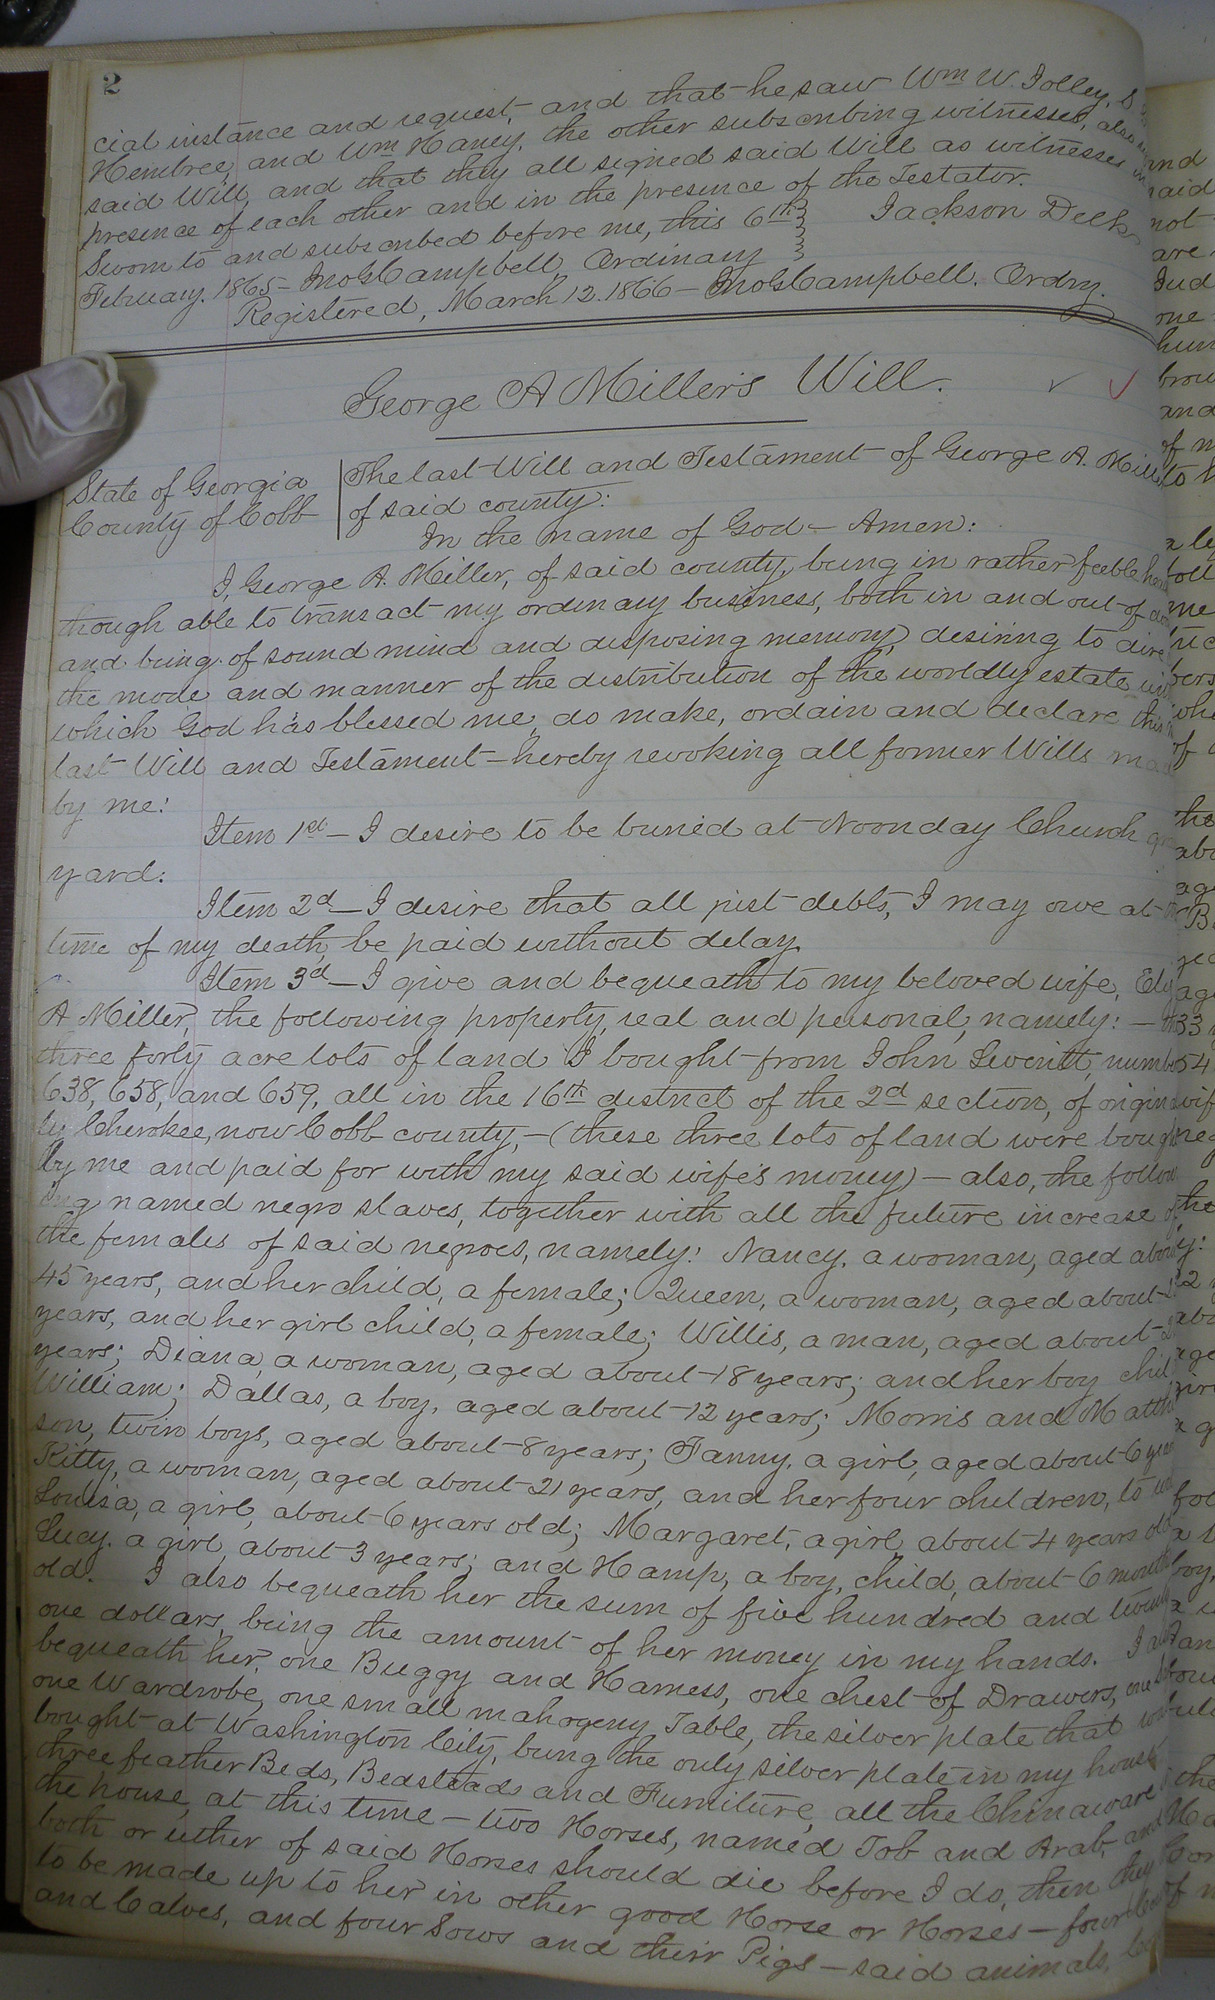 2
cial instance and request, and that he saw Wm W. Jolley,
Hembree, and Wm Haney, the other subscribing witnesses, also
said Will, and that they all signed said Will as witnesses in
presence of each other and in the presence of the Testator.
Sworn to and subscribed before me, this 6th Jackson Deek
February. 1865 - Jno G Campbell, Ordinary
Registered, March 12. 1866 - Jno G Campbell. Ordry.
George A Miller's Will.
State of Georgia
County of Cobb
The last Will and Testament of George A. Mill
of said county:
In the name of God - Amen:
I, George A. Miller, of said county, being in rather feeble
though able to transact my ordinary business, both in and out of
and being of sound mind and disposing memory, desiring to dire
the mode and manner of the distribution of the worldly estate
which God has blessed me, do make, ordain and declare this
last Will and Testament - hereby revoking all former Wills
by me:
Item 1st - I desire to be buried at Noonday Church
yard:
Item 2d - I desire that all just debts, I may owe at
time of my death, be paid without delay.
Item 3d - I give and bequeath to my beloved wife,
A Miller, the following property, real and personal, namely: -
three forty acre lots of land I bought from John Leveritt, numb
638, 658, and 659, all in the 16th district of the 2d section, of origin
ly Cherokee, now Cobb county, - (these three lots of land were boug
by me and paid for with my said wife's money) - also, the follow
ing named negro slaves, together with all the future increase
the females of said negroes, namely: Nancy, a woman, aged about
45 years, and her child, a female; Queen, a woman, aged about
years, and her girl child, a female; Willis, a man, aged about
years; Diana, a woman, aged about 18 years; and her boy chil
William; Dallas, a boy, aged about 12 years; Morris and Matthi
son, twin boys, aged about 8 years; Fanny, a girl, aged about 6 years
Kitty, a woman, aged about 21 years, and her four children, to
Louisa, a girl, about 6 years old; Margaret, a girl, about 4 years old
Lucy, a girl, about 3 years; and Hamp, a boy, child, about 6 month
old. I also bequeath her the sum of five hundred and twenty
one dollars, being the amount of her money in my hands. I
bequeath her, one Buggy and Harness, one chest of Drawers, one
one Wardrobe, one small mahogeny Table, the silver plate that
bought at Washington City, being the only silver plate in my house
three feather Beds, Bedsteads and Furniture, all the Chinaware
the house, at this time - two Horses, named Job and Arab, and
both or either of said Horses should die before I do, then they
to be made up to her in other good Horse or Horses - four
and Calves, and four Sows and their Pigs - said animals,